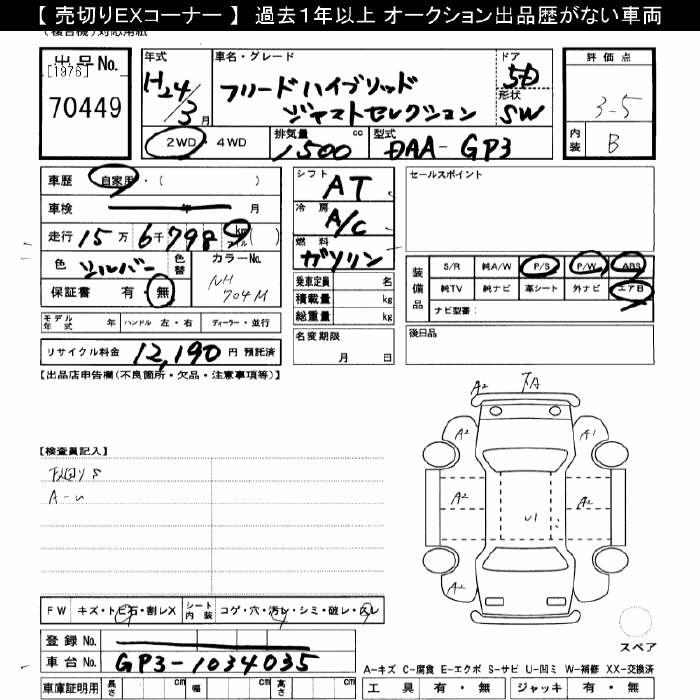 【 売切りEXコーナー 】 過去１年以上 オークション出品歴がない車両
(複合機)対応用紙
出品No.
[1976]
70449
年式
H24/3月
車名・グレード
フリードハイブリッド
ジャストセレクション
ドア
5D
形状
SW
評価点
3-5
内装
B
2WD・4WD
排気量
1500
cc
型式
DAA-GP3
車歴
自家用・( )
車検
年 月
走行
15万6千798 km
マイル
( )
色
シルバー
色替
カラーNo.
NH
704M
保証書 有 無
シフト
AT
冷房
A/C
燃料
ガソリン
乗車定員 名
積載量 kg
総重量 kg
名変期限
月 日
セールスポイント
装備品
S/R 純A/W P/S P/W ABS
純TV 純ナビ 革シート 外ナビ エアB
ナビ型番：
後日品
モデル年式 年 ハンドル 左・右 ディーラー・並行
リサイクル料金 12,190 円 預託済
【出品店申告欄(不良箇所・欠品・注意事項等)】
【検査員記入】
下回りS
A-U
A2
下A
A2 A1
A2 A2
U1
A2
FW キズ・トビ石・割レX
シート内装 コゲ・穴・汚レ・シミ・破レ・スレ
登録No.
車台No. GP3-1034035
車庫証明用 長さ cm 幅 cm 高さ cm
スペア
A-キズ C-腐食 E-エクボ S-サビ U-凹ミ W-補修 XX-交換済
工具 有・無 ジャッキ 有・無